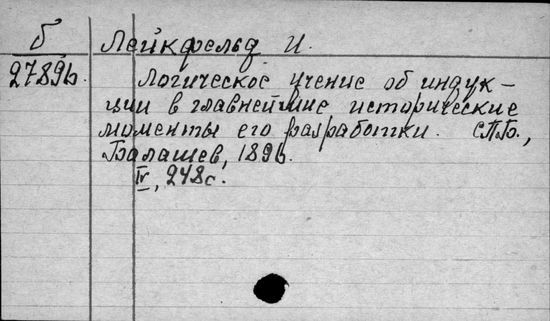 б Лейкфельд И.
27896. Логическое учение об индук-
ции в главнейшие исторические
моменты его разработки. СПБ.,
Балашев, 1896.
IV, 248с.